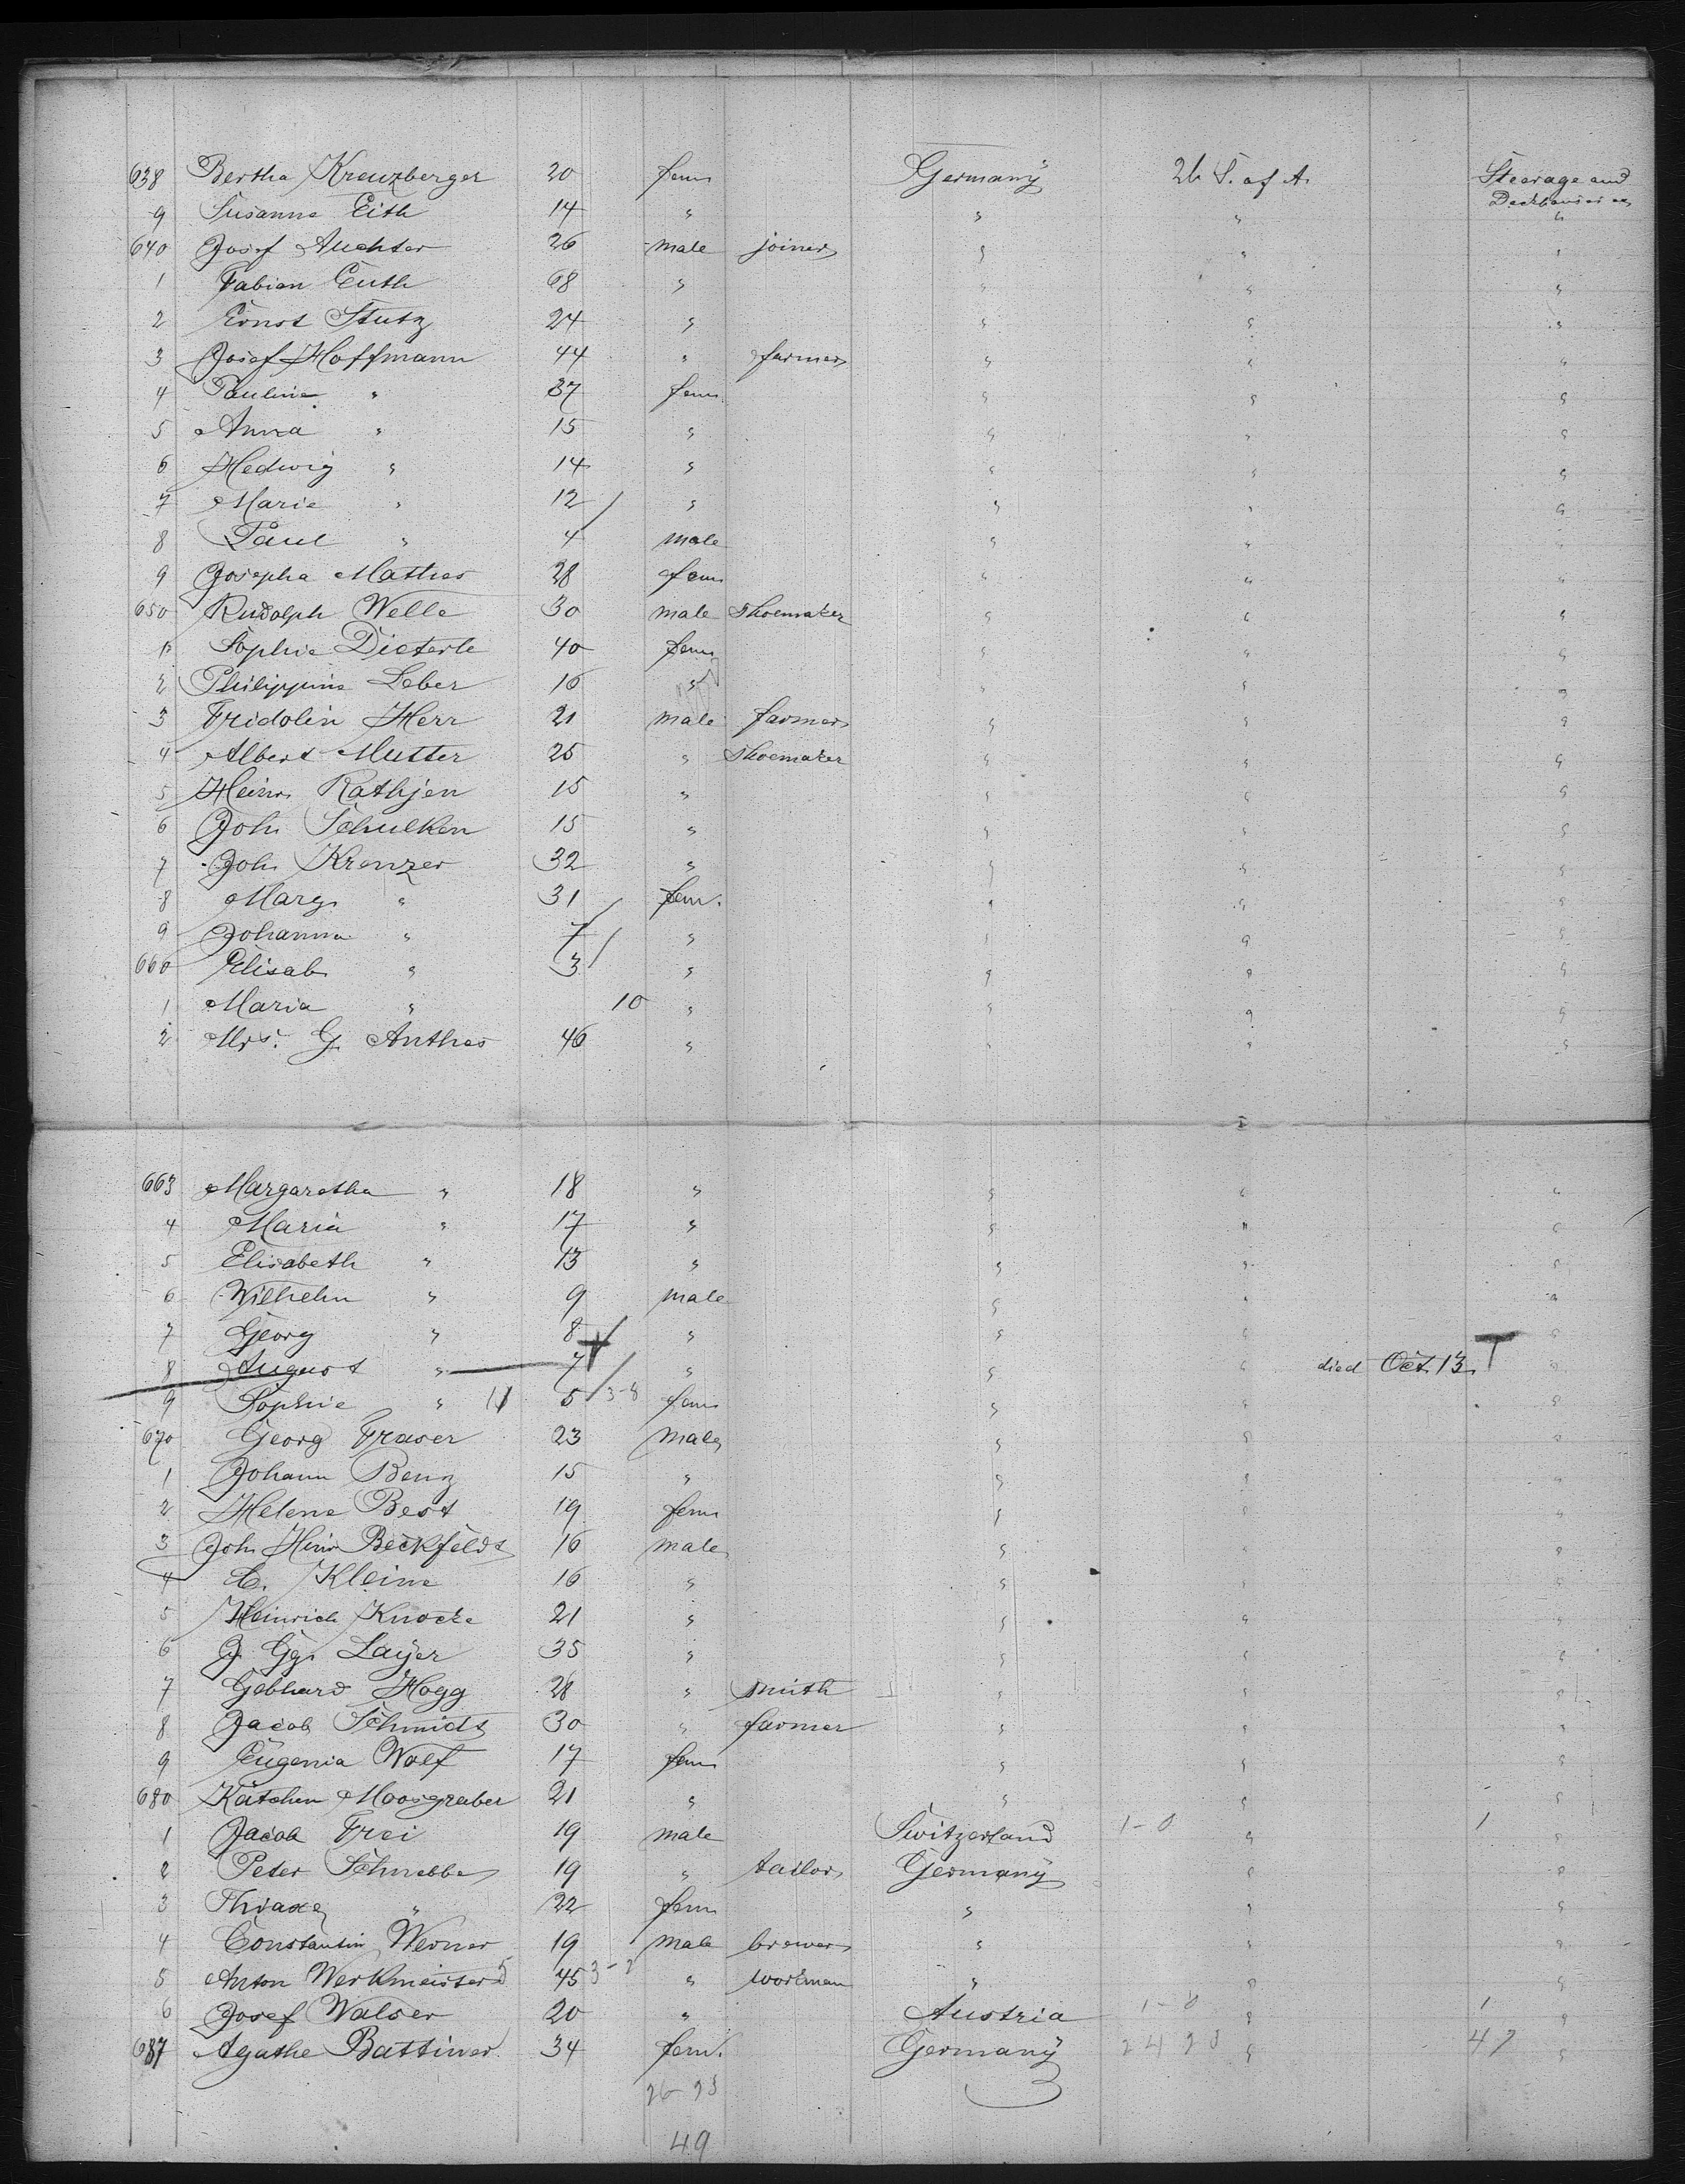 638 Bertha Kreuzberger 20 fem Germany U. S. of A. Steerage and
9 Susanne Eith 14 " " " "
640 Josef Auchter 26 male joiner " " "
1 Fabian Euth 68 " " " "
2 Ernst Stutz 24 " " " "
3 Josef Hoffmann 44 " farmer " " "
4 Pauline " 37 fem " " "
5 Anna " 15 " " " "
6 Hedwig " 14 " " " "
7 Marie " 12 " " " "
8 Paul " 4 male " " "
9 Josepha Mathes 28 fem " " "
650 Rudolph Welle 30 male Shoemaker " " "
1 Sophie Dieterle 40 fem " " "
2 Philippine Leber 16 " " " "
3 Fridolin Herr 21 male farmer " " "
4 Albert Mutter 25 " Shoemaker " " "
5 Heinr. Rathjen 15 " " " "
6 Joh. Schulken 15 " " " "
7 Joh. Krenzer 32 " " " "
8 Marg. " 31 fem. " " "
9 Johanna " 7 " " " "
660 Elisab. " 3 " " " "
1 Maria " 10 " " " "
2 Mrs. G. Anthes 46 " " " "
663 Margaretha " 18 " " " "
4 Maria " 17 " " " "
5 Elisabeth " 13 " " " "
6 Wilhelm " 9 male " " "
7 Georg " 8 " " " "
8 August " 7 " " " died Oct. 13. "
9 Sophie " 11 5 3-8 fem " " "
670 Georg Fraser 23 male " " "
1 Johann Benz 15 " " " "
2 Helene Best 19 fem " " "
3 Joh. Heinr. Beckfeldt 16 male " " "
4 C. Kleine 16 " " " "
5 Heinrich Knocke 21 " " " "
6 J. Gg. Layer 35 " " " "
7 Gebhard Hogg 28 " smith " " "
8 Jacob Schmidt 30 " farmer " " "
9 Eugenia Wolf 17 fem " " "
680 Kätchen Moosgraber 21 " " " "
1 Jacob Frei 19 male Switzerland 1-0 " 1 "
2 Peter Schnebbe 19 " tailor Germany " "
3 " 22 fem " " "
4 Constantin Werner 19 male brewer " " "
5 Anton Werkmeister 5 45 3-2 " workman " " "
6 Josef Walser 20 " Austria 1-0 " 1 "
687 Agathe Battiner 34 fem. Germany 24 23 " 47 "
26-23
49